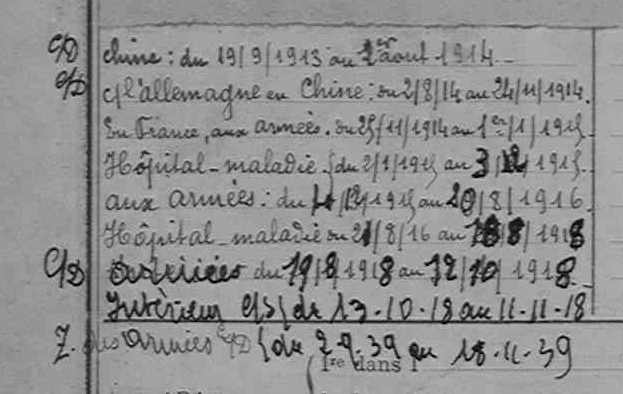 C/D Chine : du 19/9/1913 au 1er août 1914
C/D c/ l'allemagne en Chine : du 2/8/14 au 24/11/1914.
En France, aux armées. du 25/11/1914 au 1er/1/1915
Hôpital - maladie (du 2/1/1915 au 3/ 1915
aux armées : du 4/ /1915 au 20/8/1916
Hôpital - maladie du 21/8/16 au 18/8/1918
C/D du 19/8/1918 au 12/10/1918
Intérieur C/S (du 13-10-18 au 11-11-18
Armées C/D (du 2-9-39 au 18-11-39
1re dans l